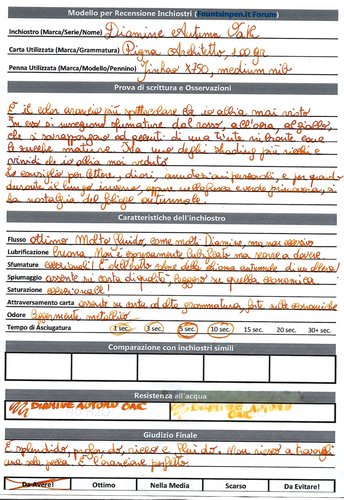 Modello per Recensione Inchiostri (Fountainpen.it Forum)
Inchiostro (Marca/Serie/Nome) Diamine Autumn Oak
Carta Utilizzata (Marca/Grammatura) Pigna Architetto, 100 gr
Penna Utilizzata (Marca/Modello/Pennino) Jinhao X750, medium nib
Prova di scrittura e Osservazioni
È il color arancio più spettacolare che io abbia mai visto
In esso si scorgono sfumature dal rosso, all'ocra, al giallo,
che si sovrappongono ad accenti di una tinta vibrante come
le zucche mature. Ha uno degli shading più ricchi e
vividi che io abbia mai veduto.
Lo consiglio per lettere, diari, annotazioni personali, e per quando
durante il lungo inverno, oppure nella fresca e verde primavera, si
ha nostalgia del foliage autunnale.
Caratteristiche dell'inchiostro
Flusso ottimo. Molto fluido, come molti Diamine, ma mai eccessivo
Lubrificazione buona. Non è esageratamente lubrificato ma scorre a dovere
Sfumature eccezionali!
Spiumaggio assente su carta di qualità, leggero su quella economica
Saturazione eccezionale!
Attraversamento carta assente su carte ad alta grammatura, forte sulle economiche
Odore leggermente metallico
Tempo di Asciugatura 1 sec. 3 sec. 5 sec. 10 sec. 15 sec. 20 sec. 30+ sec.
Comparazione con inchiostri simili
Resistenza all'acqua
DIAMINE AUTUMN OAK
Giudizio Finale
È splendido, profondo, ricco e fluido. Non riesco a trovargli
una sola pecca. È l'arancione perfetto
Da Avere! Ottimo Nella Media Scarso Da Evitare!